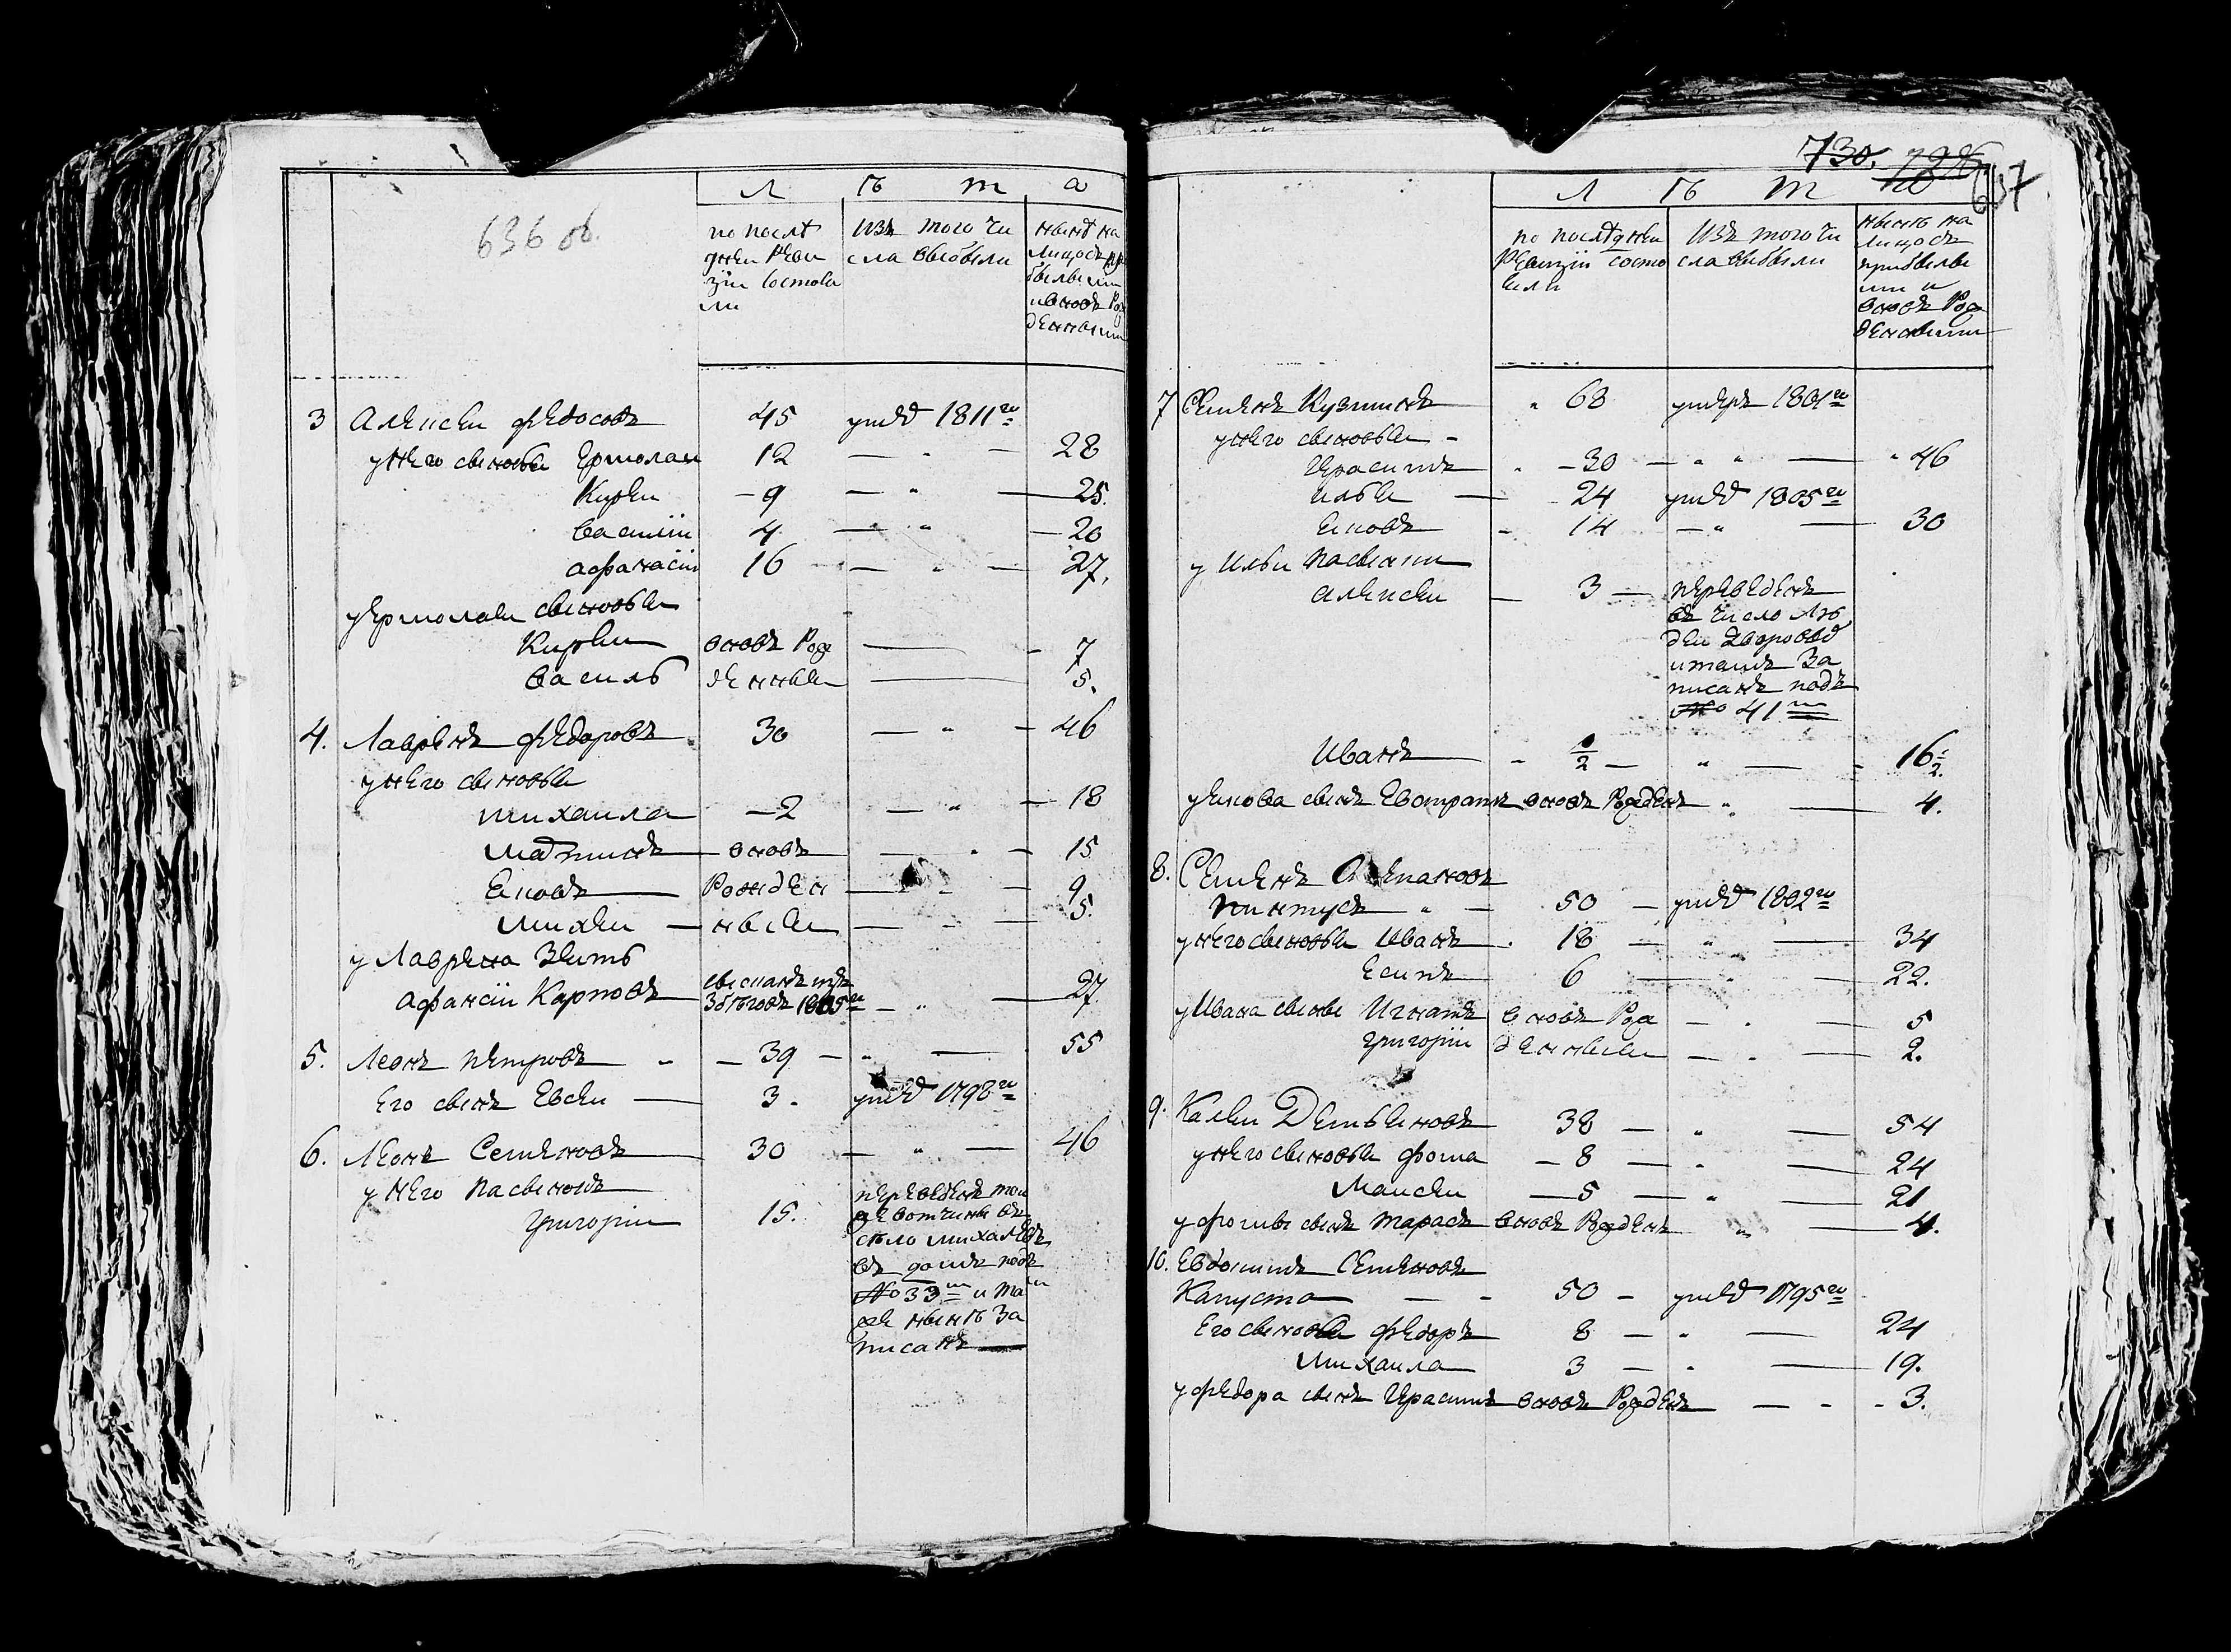 636 об.
Л ѣ т а
по послѣ
дней Реви
зіи Состояли
Изъ того чи
сла выбыли
нынѣ на
Лицо съ при
былыми
и вновь Рож
денными
3 Алексей Федосовъ 45 умеръ 1811го
у него сыновья Ермолай 12 — " — 28
Кирей — 9 — " — 25.
Василій 4 — " — 20
Афанасій 16 — " — 27.
у Ермолая сыновья
Кирей вновь Рож — 7
Василь денныя — 5.
4. Лавренъ Федоровъ 30 — " — 46
у него сыновья
Михайла — 2 — " — 18
вновь — " — 15
Яковъ Рожден — 9
Михей — ныя — 5.
у Лаврена Зять
Афансіи Карповъ 1805го — " — 27.
5. Леонъ Петровъ — 39 — " — 55
Его сынъ Евсей — 3. умеръ 1798го
6. Леонъ Семеновъ 30 — " — 46
у него пасынокъ
Григорій 15. переведенъ той
же вотчины въ
село Михалевъ
въ домъ подъ
№ 33м и та
же нынѣ За
писанъ —
730. 726
637
Л ѣ т а
по послѣдней
Ревизіи состо
яли
Изъ того чи
сла выбыли
нынѣ на
Лицо съ
прибылы
ми и
вновь Рож
денными
7 Семенъ Кузминъ " 68 умеръ 1801го
у него сыновья -
Герасимъ - 30 — " " — 46
Илья — 24 умеръ 1805го
Яковъ - 14 — " — 30
у Ильи пасынки
Алексей — 3 — переведенъ
въ число лю
дей дворовыхъ
и тамъ За
писанъ подъ
№ 41м
Иванъ - 1/2 — " — 16 1/2.
у Якова сынъ Евстратъ вновь Рожденъ " — 4.
8. Семенъ Степановъ
" — 50 — умеръ 1802го
у него сыновья Иванъ . 18 — " — 34
Есипъ 6 — " — 22.
у Ивана сыны Игнатъ вновь Рож — " — 5
Григорій денныя — " — 2.
9. Калей Демьяновъ 38 — " — 54
у него сыновья Фома — 8 — " — 24
Майсей — 5 — " — 21
у Фомы сынъ Тарасъ вновь Рожденъ " — 4.
10. Евдокимъ Семеновъ
Капуста — 50 — умеръ 1795го
Его сыновья Федоръ 8 — " — 24
Михайла 3 — " — 19.
у Федора сынъ Герасимъ вновь Рожденъ — " - 3.